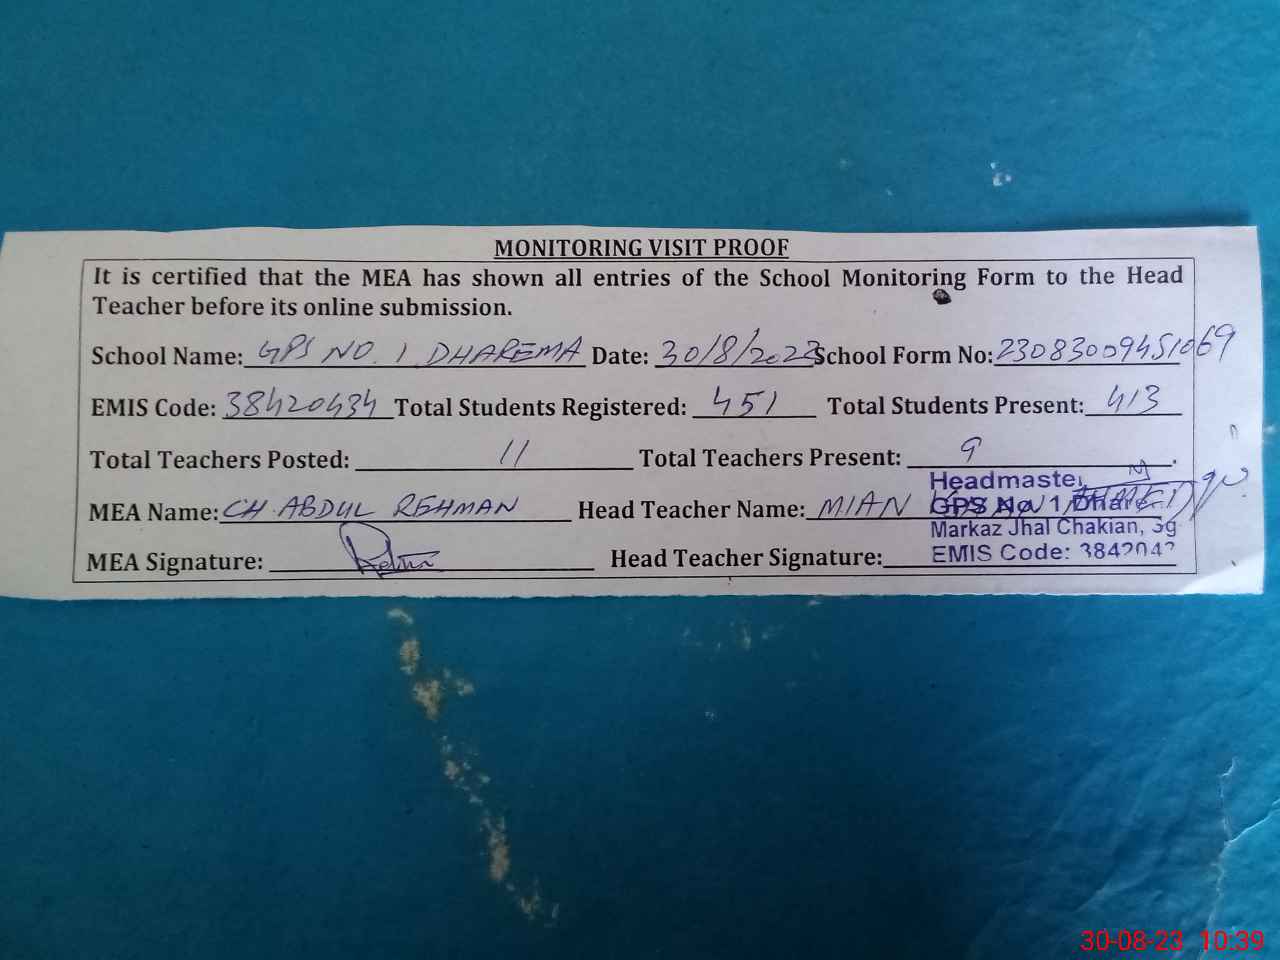 MONITORING VISIT PROOF
It is certified that the MEA has shown all entries of the School Monitoring Form to the Head
Teacher before its online submission.
School Name: GPS NO. 1 DHAREMA Date: 30/8/2023 School Form No: 23083009451069
EMIS Code: 38420434 Total Students Registered: 451 Total Students Present: 413
Total Teachers Posted: 11 Total Teachers Present: 9.
Headmaster
MEA Name: CH. ABDUL REHMAN Head Teacher Name: MIAN
GPS No. 1, Dhare
Markaz Jhal Chakian, Sg
MEA Signature: Head Teacher Signature:
EMIS Code: 3842043
30-08-23 10:39